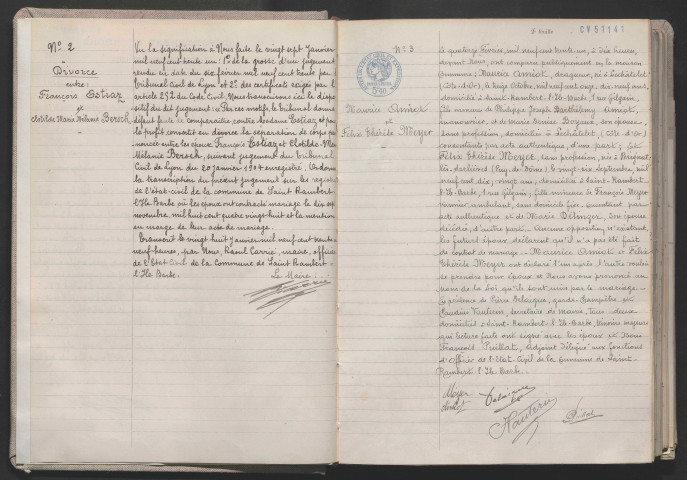 N° 2
Divorce
entre :
François Estraz
et
Clotilde Marie Mélanie Bersch
Vu la signification à Nous faite le vingt sept Janvier
mil neuf cent trente un : 1° de la grosse d'un jugement
rendu en date du six février mil neuf cent trente par
Tribunal Civil de Lyon et 2° des certificats exigés par l'
article 252 du Code Civil. Nous transcrivons ici le dispo-
sitif du dit jugement : « Par ces motifs, le Tribunal donne
défaut faute de comparaître contre Madame Estraz et pour
le profit convertit en divorce la séparation de corps pro-
noncée entre les époux François Estraz et Clotilde-Marie
Mélanie Bersch, suivant jugement du Tribunal
Civil de Lyon du 20 janvier 1904 enregistré. Ordonne
la transcription du présent jugement sur les registres
de l'état-civil de la commune de Saint Rambert
l'Ile Barbe où les époux ont contracté mariage le dix sept
novembre, mil huit cent quatre vingt huit et la mention
en marge de leur acte de mariage.
Transcrit le vingt huit Janvier mil neuf cent trente un
neuf heures, par Nous, Raoul Carrié, maire, officier
de l'Etat Civil de la Commune de Saint Rambert-
l'Ile Barbe.
Le Maire :
CV 51141
N° 3
Maurice Amiot
et
Félix Thérèse Meyer
Le quatorze Février, mil neuf cent trente un, à dix heures,
devant Nous, ont comparu publiquement en la maison
Commune : Maurice Amiot, dragueur, né à Lechâtelet
(Côte d'Or), le vingt Octobre, mil neuf cent onze, dix neuf ans,
domicilié à Saint-Rambert l'Ile-Barbe, 1 rue Gilquin,
fils mineur de Philippe Joseph Barthélémy Amiot,
manouvrier, et de Marie Denise Boyaux, son épouse,
sans profession, domiciliés à Lechâtelet, (Côte d'Or)
consentants par acte authentique, d'une part ; et
Félix Thérèse Meyer, sans profession, née à Perignat-
lès-Sarlièves (Puy-de-Dôme), le vingt-six Septembre, mil
neuf cent, dix, vingt ans, domiciliée à Saint-Rambert
l'Ile-Barbe, 1 rue Gilquin, fille mineure de François Meyer
vannier ambulant, sans domicile fixe, consentant par
acte authentique et de Marie Délinger, son épouse
décédée, d'autre part. Aucune opposition n'existant,
les futurs époux déclarent qu'il n'a pas été fait
de contrat de mariage. - Maurice Amiot et Félix
Thérèse Meyer ont déclaré l'un après l'autre vouloir
se prendre pour époux et Nous avons prononcé au
nom de la Loi qu'ils sont unis par le mariage. -
En présence de Pierre Delaigue, garde-champêtre et
Claudius Vautherin, secrétaire de Mairie, tous deux
domiciliés à Saint-Rambert l'Ile-Barbe, témoins majeurs
qui lecture faite ont signé avec les époux et Nous
François Puillat, Adjoint délégué aux fonctions
d'Officier de l'Etat-Civil de la Commune de Saint-
Rambert l'Ile-Barbe.
Meyer
Amiot
Delaigue